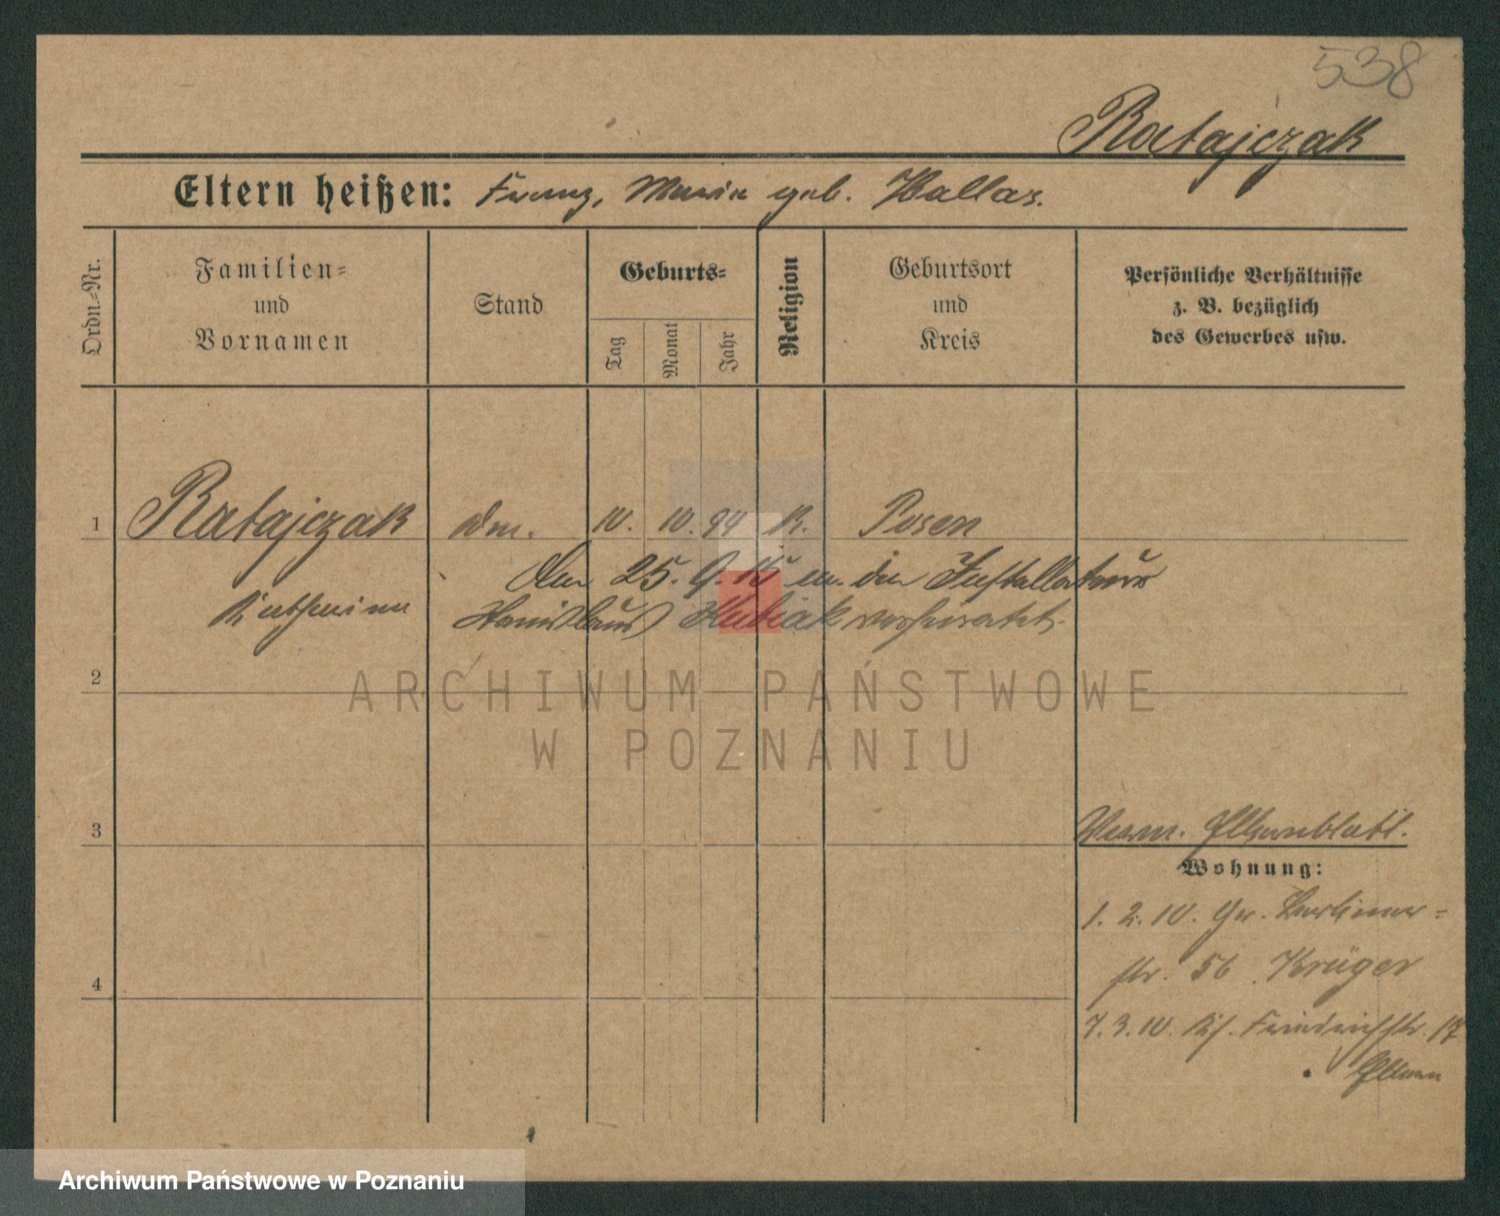 538
Ratajczak
Eltern heißen: Franz, Maria geb. Hallas.
Ordn.=Nr.
Familien=
und
Vornamen
Stand
Geburts=
Tag
Monat
Jahr
Religion
Geburtsort
und
Kreis
Persönliche Verhältnisse
z. B. bezüglich
des Gewerbes usw.
1 Ratajczak 10. 10. 94 K. Posen
Am 25. 9. 15 den Installateur
Katharina Stanislaus Kubiak verheiratet.
2
ARCHIWUM PAŃSTWOWE
W POZNANIU
3
Elternblatt.
Wohnung:
1. 2. 10. Gr. Berliner=
str. 56 Krüger
4
7. 3. 10. Friedrichstr. 17
Eltern
Archiwum Państwowe w Poznaniu